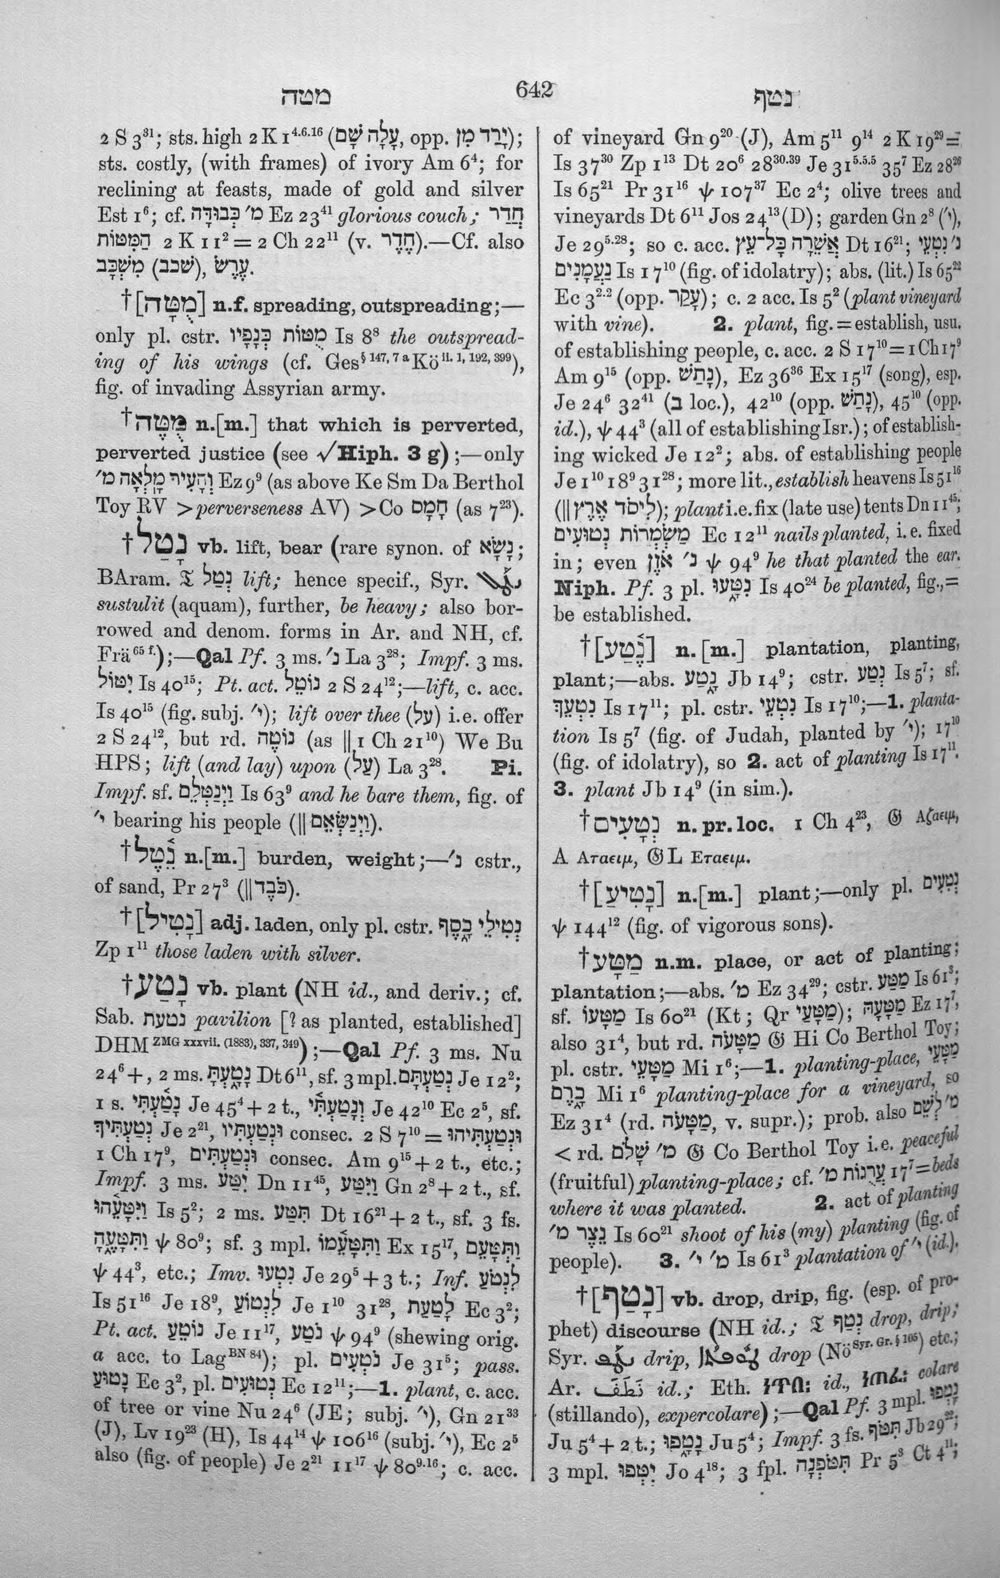 מטה
642
נטף
2 S 3³¹; sts. high 2 K 1⁴·⁶·¹⁶ (עָלָה שָׁם, opp. יָרַד מִן);
sts. costly, (with frames) of ivory Am 6⁴; for
reclining at feasts, made of gold and silver
Est 1⁶; cf. מ׳ כְּבוּדָּה Ez 23⁴¹ glorious couch; חֲדַר
הַמִּטּוֹת 2 K 11² = 2 Ch 22¹¹ (v. חֶדֶר).—Cf. also
עֶרֶשׂ, (שכב) מִשְׁכָּב.
†[מֻטָּה] n.f. spreading, outspreading;—
only pl. cstr. מֻטּוֹת כְּנָפָיו Is 8⁸ the outspread-
ing of his wings (cf. Ges§ 147, 7 a Kö ii. 1, 192, 399),
fig. of invading Assyrian army.
†מֻטֶּה n.[m.] that which is perverted,
perverted justice (see √Hiph. 3 g);—only
וְהָעִיר מָלְאָה מ׳ Ez 9⁹ (as above Ke Sm Da Berthol
Toy RV > perverseness AV) > Co חָמָס (as 7²³).
†נָטַל vb. lift, bear (rare synon. of נָשָׂא;
BAram. 𝔗 נְטַל lift; hence specif., Syr.
sustulit (aquam), further, be heavy; also bor-
rowed and denom. forms in Ar. and NH, cf.
Frä⁶⁵ ᶠ·);—Qal Pf. 3 ms. נ׳ La 3²⁸; Impf. 3 ms.
יִטּוֹל Is 40¹⁵; Pt. act. נוֹטֵל 2 S 24¹²;—lift, c. acc.
Is 40¹⁵ (fig. subj. י׳); lift over thee (עַל) i.e. offer
2 S 24¹², but rd. נוֹטֶה (as || 1 Ch 21¹⁰) We Bu
HPS; lift (and lay) upon (עַל) La 3²⁸. Pi.
Impf. sf. וַיְנַטְּלֵם Is 63⁹ and he bare them, fig. of
י׳ bearing his people (|| וַיְנַשְּׂאֵם).
†נֵטֶל n.[m.] burden, weight;—נ׳ cstr.,
of sand, Pr 27³ (|| כֹּבֶד).
†[נָטִיל] adj. laden, only pl. cstr. נְטִילֵי כָסֶף
Zp 1¹¹ those laden with silver.
†נָטַע vb. plant (NH id., and deriv.; cf.
Sab. נטעת pavilion [? as planted, established]
DHM ZMG xxxvii. (1883), 337, 349);—Qal Pf. 3 ms. Nu
24⁶ +, 2 ms. נָטָעְתָּ Dt 6¹¹, sf. 3 mpl. נְטַעְתָּם Je 12²;
1 s. נָטַעְתִּי Je 45⁴ + 2 t., וְנָטַעְתִּי Je 42¹⁰ Ec 2⁵, sf.
נְטַעְתִּיךְ Je 2²¹, וּנְטַעְתִּיו consec. 2 S 7¹⁰ = וּנְטַעְתִּיהוּ
1 Ch 17⁹, וּנְטַעְתִּים consec. Am 9¹⁵ + 2 t., etc.;
Impf. 3 ms. יִטַּע Dn 11⁴⁵, וַיִּטַּע Gn 2⁸ + 2 t., sf.
וַיִּטָּעֵהוּ Is 5²; 2 ms. תִּטַּע Dt 16²¹ + 2 t., sf. 3 fs.
וַתִּטָּעֶהָ ψ 80⁹; sf. 3 mpl. וְתִטָּעֵמוֹ Ex 15¹⁷, וַתִּטָּעֵם
ψ 44³, etc.; Imv. נִטְעוּ Je 29⁵ + 3 t.; Inf. לִנְטֹעַ
Is 51¹⁶ Je 18⁹, לִנְטוֹעַ Je 1¹⁰ 31²⁸, לָטַעַת Ec 3²;
Pt. act. נוֹטֵעַ Je 11¹⁷, נֹטַע ψ 94⁹ (shewing orig.
a acc. to Lag BN 84); pl. נֹטְעִים Je 31⁵; pass.
נָטוּעַ Ec 3², pl. נְטוּעִים Ec 12¹¹;—1. plant, c. acc.
of tree or vine Nu 24⁶ (JE; subj. י׳), Gn 21³³
(J), Lv 19²³ (H), Is 44¹⁴ ψ 106¹⁶ (subj. י׳), Ec 2⁵
also (fig. of people) Je 2²¹ 11¹⁷ ψ 80⁹·¹⁶; c. acc.
of vineyard Gn 9²⁰ (J), Am 5¹¹ 9¹⁴ 2 K 19²⁹ =
Is 37³⁰ Zp 1¹³ Dt 20⁶ 28³⁰·³⁹ Je 31⁵·⁵·⁵ 35⁷ Ez 28²⁶
Is 65²¹ Pr 31¹⁶ ψ 107³⁷ Ec 2⁴; olive trees and
vineyards Dt 6¹¹ Jos 24¹³ (D); garden Gn 2⁸ (י׳),
Je 29⁵·²⁸; so c. acc. אֲשֵׁרָה כָּל־עֵץ Dt 16²¹; נ׳ נִטְעֵי
נַעֲמָנִים Is 17¹⁰ (fig. of idolatry); abs. (lit.) Is 65²²
Ec 3²·² (opp. עָקַר); c. 2 acc. Is 5² (plant vineyard
with vine). 2. plant, fig. = establish, usu.
of establishing people, c. acc. 2 S 17¹⁰ = 1 Ch 17⁹
Am 9¹⁵ (opp. נָתַשׁ), Ez 36³⁶ Ex 15¹⁷ (song), esp.
Je 24⁶ 32⁴¹ (בְּ loc.), 42¹⁰ (opp. נָתַשׁ), 45¹⁰ (opp.
id.), ψ 44³ (all of establishing Isr.); of establish-
ing wicked Je 12²; abs. of establishing people
Je 1¹⁰ 18⁹ 31²⁸; more lit., establish heavens Is 51¹⁶
(|| יסד אֶרֶץ); plant i.e. fix (late use) tents Dn 11⁴⁵;
מַשְׂמְרוֹת נְטוּעִים Ec 12¹¹ nails planted, i.e. fixed
in; even נ׳ אֹזֶן ψ 94⁹ he that planted the ear.
Niph. Pf. 3 pl. נִטָּעוּ Is 40²⁴ be planted, fig., =
be established.
†[נֶטַע] n.[m.] plantation, planting,
plant;—abs. נָטַע Jb 14⁹; cstr. נְטַע Is 5⁷; sf.
נִטְעֵךְ Is 17¹¹; pl. cstr. נִטְעֵי Is 17¹⁰;—1. planta-
tion Is 5⁷ (fig. of Judah, planted by י׳); 17¹⁰
(fig. of idolatry), so 2. act of planting Is 17¹¹.
3. plant Jb 14⁹ (in sim.).
†נְטָעִים n.pr.loc. 1 Ch 4²³, 𝔊 Αζαειμ,
A Αταειμ, 𝔊L Εταειμ.
†[נָטִיעַ] n.[m.] plant;—only pl. נְטִעִים
ψ 144¹² (fig. of vigorous sons).
†מַטָּע n.m. place, or act of planting;
plantation;—abs. מ׳ Ez 34²⁹; cstr. מַטַּע Is 61³;
sf. מַטָּעוֹ Is 60²¹ (Kt; Qr מַטָּעַי); מַטָּעָהּ Ez 17⁷,
also 31⁴, but rd. מַטָּעֹה 𝔊 Hi Co Berthol Toy;
pl. cstr. מַטָּעֵי Mi 1⁶;—1. planting-place, מַטָּעֵי
כָרֶם Mi 1⁶ planting-place for a vineyard, so
Ez 31⁴ (rd. מַטָּעֹה, v. supr.); prob. also מ׳ לְשֵׁם
< rd. מ׳ שָׁלֹם 𝔊 Co Berthol Toy i.e. peaceful
(fruitful) planting-place; cf. עֲרֻגוֹת מ׳ 17⁷ = beds
where it was planted. 2. act of planting
נֵצֶר מ׳ Is 60²¹ shoot of his (my) planting (fig. of
people). 3. מ׳ י׳ Is 61³ plantation of י׳ (id.).
†[נָטַף] vb. drop, drip, fig. (esp. of pro-
phet) discourse (NH id.; 𝔗 נְטַף drop, drip;
Syr. drip, drop (Nö Syr. Gr. § 105) etc.;
Ar. نَطَفَ id.; Eth. id., colare
(stillando), expercolare);—Qal Pf. 3 mpl. נָטְפוּ
Ju 5⁴ + 2 t.; נָטָפוּ Ju 5⁴; Impf. 3 fs. תִּטּוֹף Jb 29²²;
3 mpl. יִטְּפוּ Jo 4¹⁸; 3 fpl. תִּטֹּפְנָה Pr 5³ Ct 4¹¹;